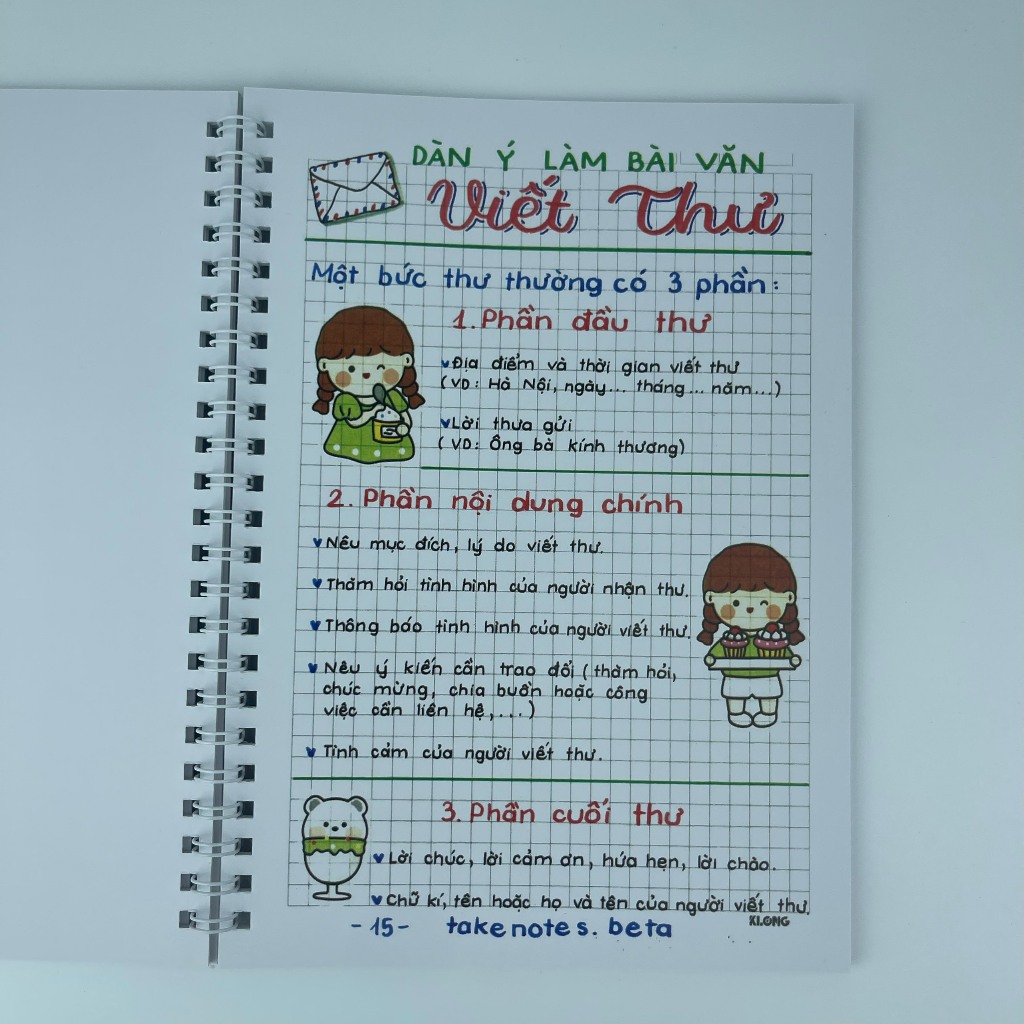 DÀN Ý LÀM BÀI VĂN
Viết Thư
Một bức thư thường có 3 phần:
1. Phần đầu thư
Địa điểm và thời gian viết thư
(VD: Hà Nội, ngày... tháng... năm...)
Lời thưa gửi
(VD: Ông bà kính thương)
2. Phần nội dung chính
Nêu mục đích, lý do viết thư.
Thăm hỏi tình hình của người nhận thư.
Thông báo tình hình của người viết thư.
Nêu ý kiến cần trao đổi (thăm hỏi,
chúc mừng, chia buồn hoặc công
việc cần liên hệ,...)
Tình cảm của người viết thư.
3. Phần cuối thư
Lời chúc, lời cảm ơn, hứa hẹn, lời chào.
Chữ kí, tên hoặc họ và tên của người viết thư.
KLONG
-15- takenotes.beta